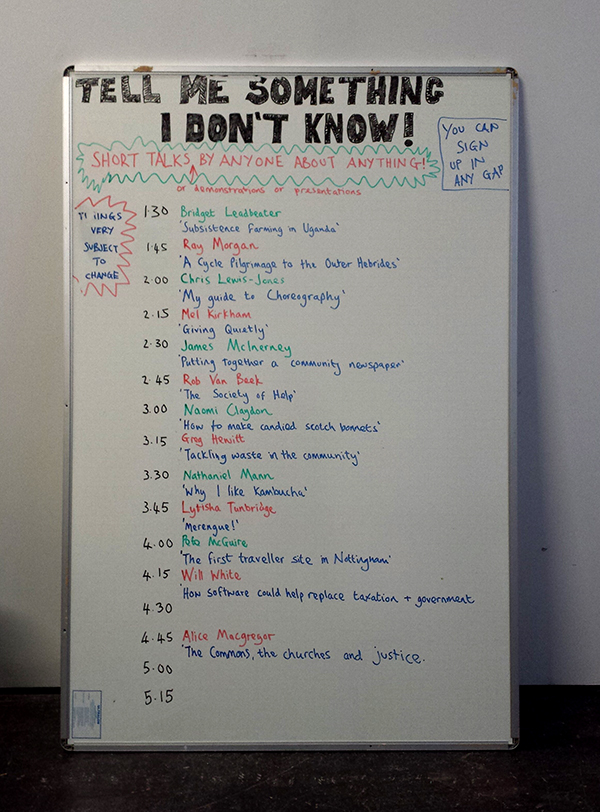 TELL ME SOMETHING
I DON'T KNOW!
SHORT TALKS BY ANYONE ABOUT ANYTHING!
or demonstrations or presentations
YOU CAN
SIGN
UP IN
ANY GAP
THINGS
VERY
SUBJECT
TO
CHANGE
1:30 Bridget Leadbeater
'Subsistence Farming in Uganda'
1:45 Ray Morgan
'A Cycle Pilgrimage to the Outer Hebrides'
2.00 Chris Lewis-Jones
'My guide to Choreography'
2.15 Mel Kirkham
'Giving Quietly'
2.30 James McInerney
'Putting together a community newspaper'
2.45 Rob Van Beek
'The Society of Help'
3.00 Naomi Claydon
'How to make candied scotch bonnets'
3.15 Greg Hewitt
'Tackling waste in the community'
3.30 Nathaniel Mann
'Why I like Kambucha'
3.45 Lytisha Tunbridge
'Merengue!'
4.00 Pete McGuire
'The first traveller site in Nottingham'
4.15 Will White
'How software could help replace taxation + government
4.30
4.45 Alice Macgregor
'The Commons, the churches and justice.
5.00
5.15